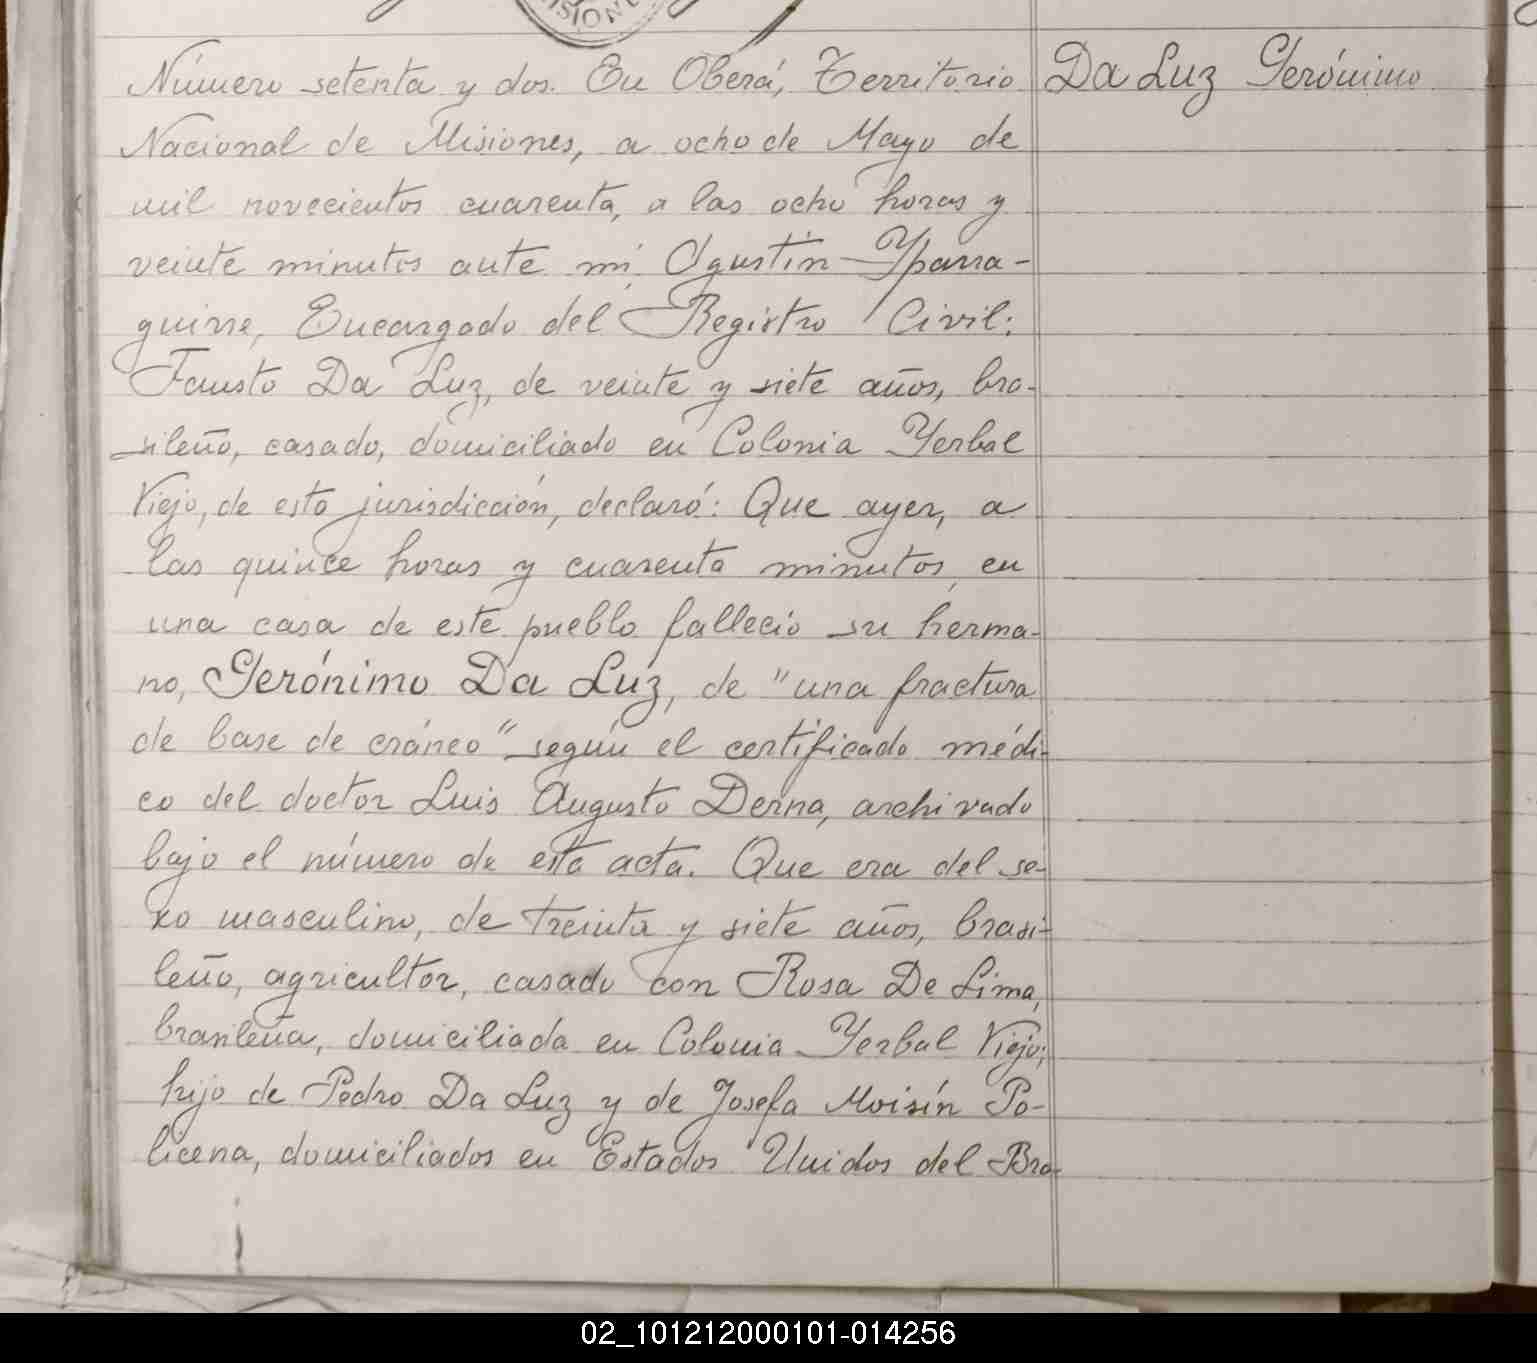 SION
Número setenta y dos. En Oberá, Territorio
Da Luz Gerónimo
Nacional de Misiones, a ocho de Mayo de
mil novecientos cuarenta, a las ocho horas y
veinte minutos ante mí, Agustín Yparra-
guirre, Encargado del Registro Civil:
Fausto Da Luz, de veinte y siete años, bra-
sileño, casado, domiciliado en Colonia Yerbal
Viejo, de esta jurisdicción, declaró: Que ayer, a
las quince horas y cuarenta minutos, en
una casa de este pueblo falleció su herma-
no, Gerónimo Da Luz, de "una fractura
de base de cráneo" según el certificado médi-
co del doctor Luis Augusto Derna, archivado
bajo el número de esta acta. Que era del se-
xo masculino, de treinta y siete años, brasi-
leño, agricultor, casado con Rosa De Lima,
brasileña, domiciliada en Colonia Yerbal Viejo;
hijo de Pedro Da Luz y de Josefa Moisín Po-
licena, domiciliados en Estados Unidos del Bra-
02_101212000101-014256